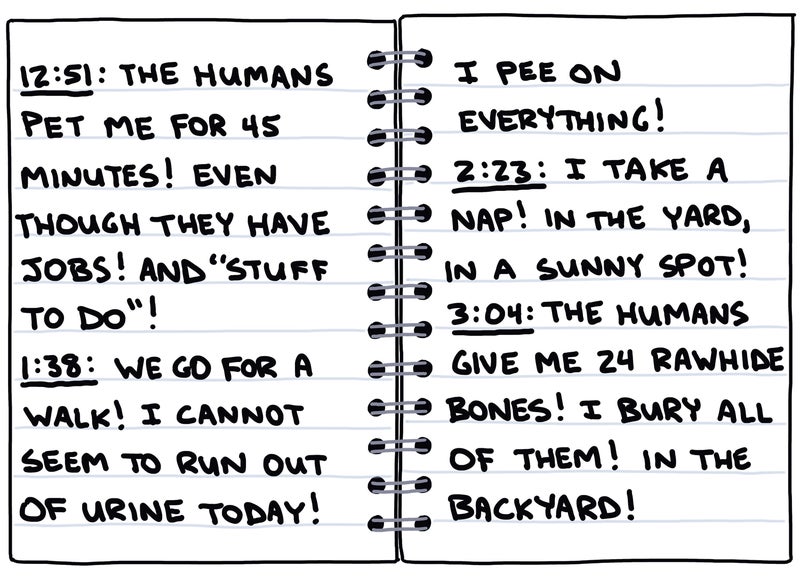 12:51: THE HUMANS
PET ME FOR 45
MINUTES! EVEN
THOUGH THEY HAVE
JOBS! AND "STUFF
TO DO"!
1:38: WE GO FOR A
WALK! I CANNOT
SEEM TO RUN OUT
OF URINE TODAY!
I PEE ON
EVERYTHING!
2:23: I TAKE A
NAP! IN THE YARD,
IN A SUNNY SPOT!
3:04: THE HUMANS
GIVE ME 24 RAWHIDE
BONES! I BURY ALL
OF THEM! IN THE
BACKYARD!